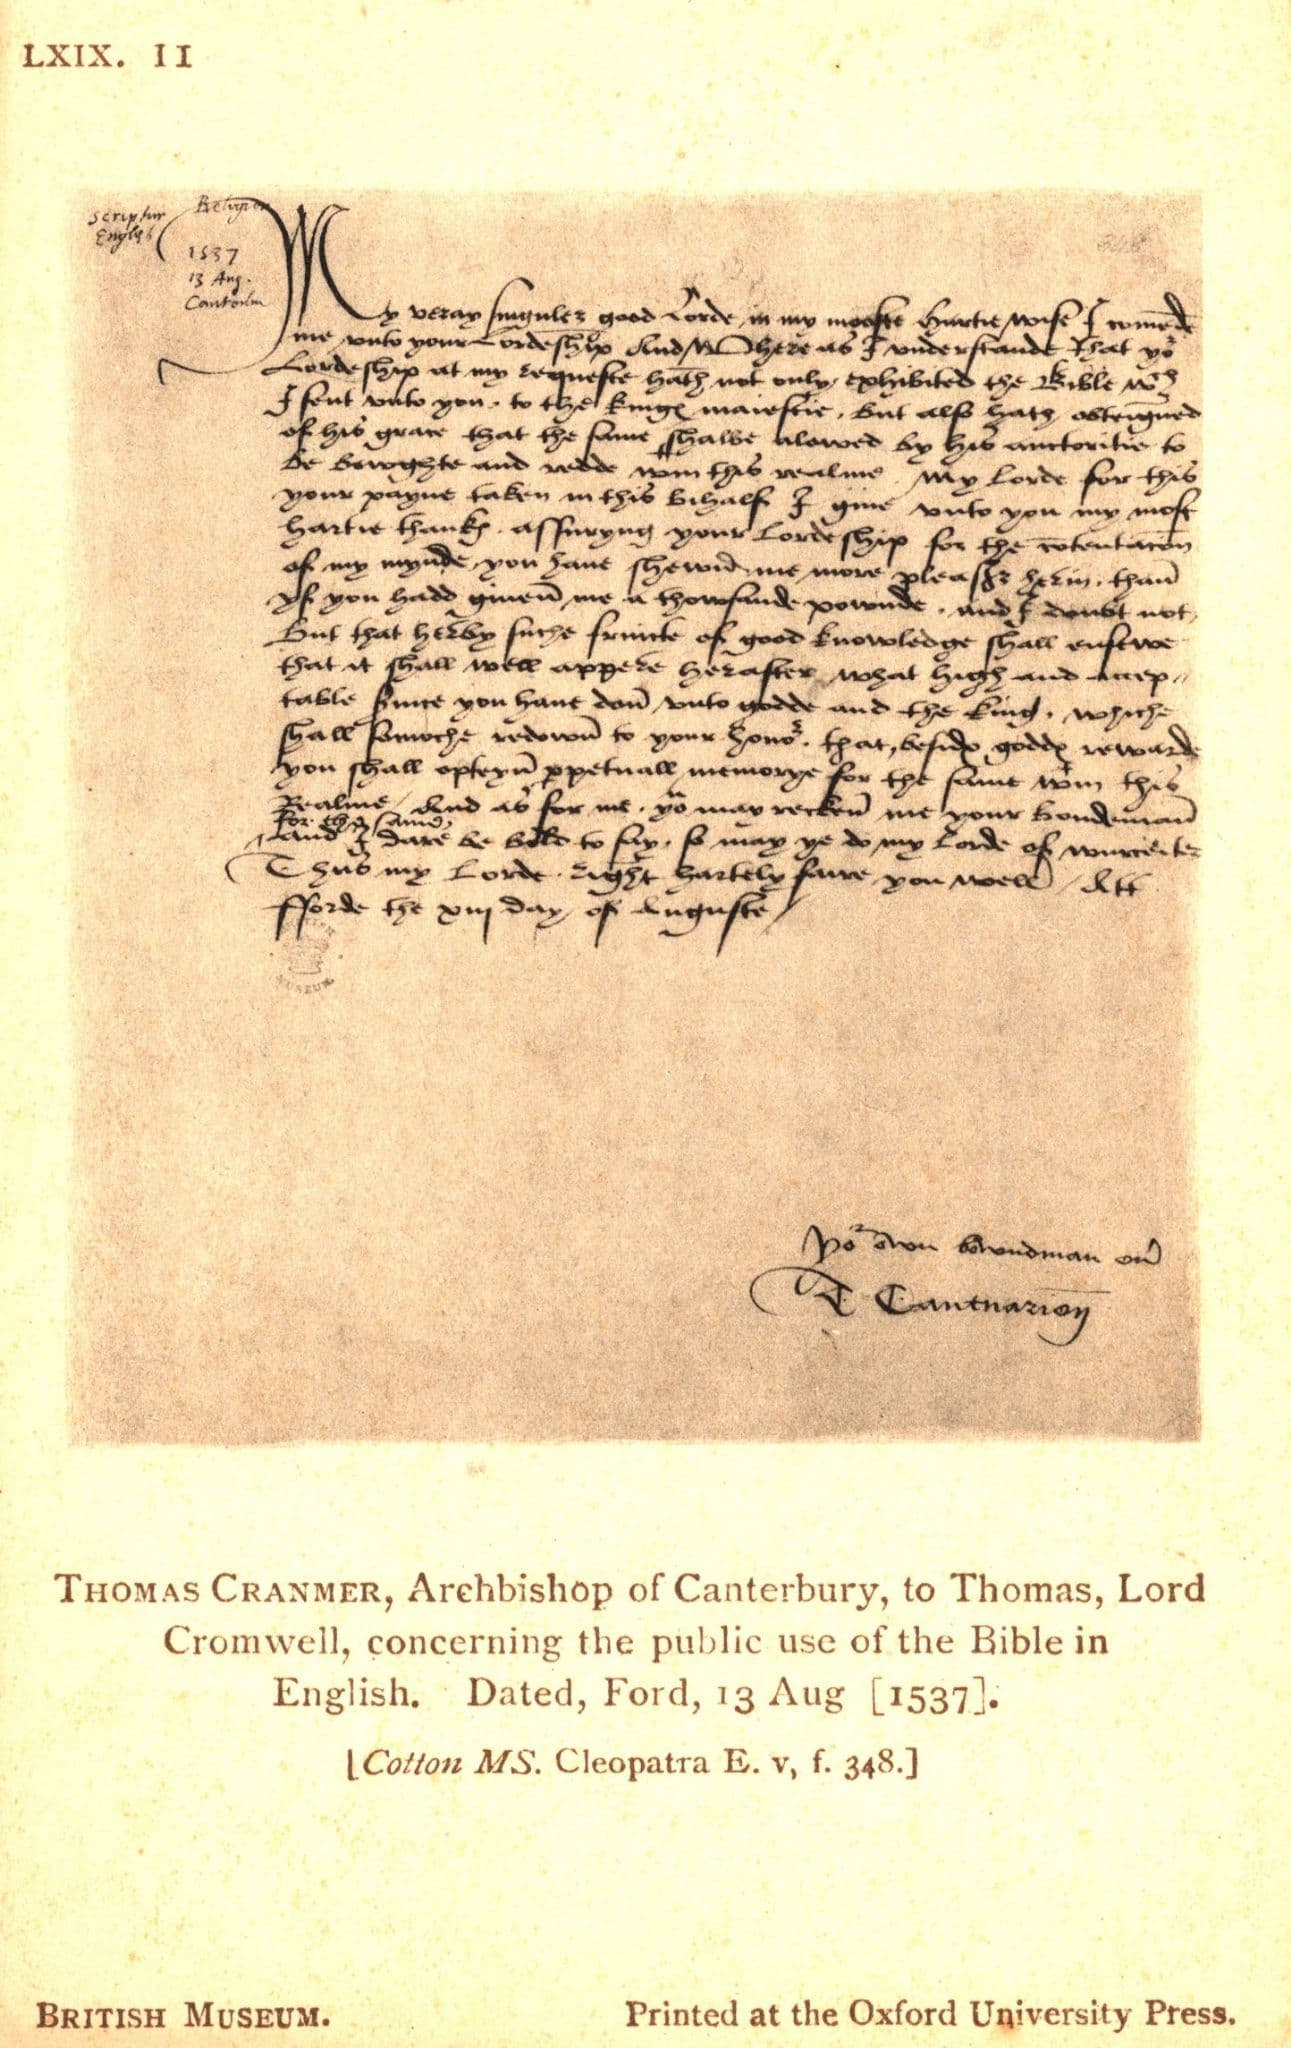 LXIX. 11
Scriptur
Englysh
Religion
1537
13 Aug.
My veray singuler good Lorde, in my mooste hartie wise I comēde
me vnto your Lordeship And Where as I vnderstande that yoʳ
Lordeship at my requeste hath not only exhibited the Bible wᶜʰ
I sent vnto you, to the kingꝭ maiestie, but also hath obteigned
of his grace that the same shalbe alowed by his auctoritie to
be bowghte and redde wᵗin this realme My Lorde for this
your payne taken in this bihalf I give vnto you my most
hartie thankꝭ, assuryng your Lordeship for the cōtentacōn
of my mynde, you haue shewid me more pleasʳ herin, than
yf you hadd given me a thowsande pownde, and I doubt not
but that herby suche fruicte of good knowledge shall ensewe
that it shall well appere herafter what high and accep-
table Suice you haue don vnto godde and the king, whiche
shall somoche redown to your honoʳ, that, besidꝭ goddꝭ rewarde
you shall opteyn ꝑpetuall memorye for the same wᵗin this
Realme And as for me, yoᵘ may recken me your bondemann
for the same
And I dare be bold to say, so may ye do my Lorde of wurceiter
Thus my Lorde, right hartely faire you well Att
fforde the xiij day of Auguste
MUSEUM
Yoʳ own bowndman ou̅
T Cantuarien̄
THOMAS CRANMER, Archbishop of Canterbury, to Thomas, Lord
Cromwell, concerning the public use of the Bible in
English. Dated, Ford, 13 Aug [1537].
[Cotton MS. Cleopatra E. v, f. 348.]
BRITISH MUSEUM.
Printed at the Oxford University Press.